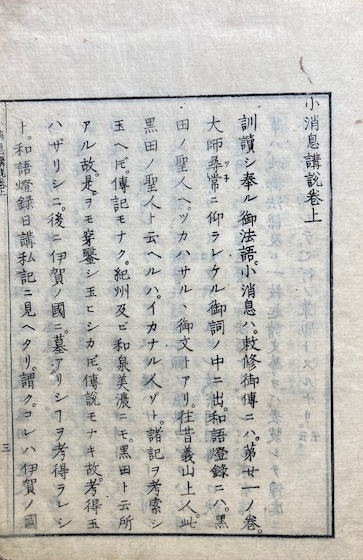 小消息講說卷上
訓讀シ奉ル御法語。小消息ハ。敕修御傳ニハ。第廿一ノ卷。
大師尋常ニ仰ラレケル御詞ノ中ニ出。和語燈錄ニハ。黑
ツネ
田ノ聖人ヘ。ツカハサル丶御文トアリ。往昔義山上人。此
黑田ノ聖人ト云ヘルハ。イカナル人ゾト。諸記ヲ考索シ
玉ヘ𪜈。傳記モナク。紀州及ビ和泉美濃ニモ。黑田ト云所
アル故。是ヲモ穿鑿シ玉ヒシカ𪜈。傳說モナキ故。考得玉
ハザリシニ。後ニ伊賀ノ國ニ。墓アリシヿヲ考得ラレシ
ト。和語燈錄日講私記ニ見ヘタリ。謂ク。コレハ伊賀ノ國
消息講說卷上
三